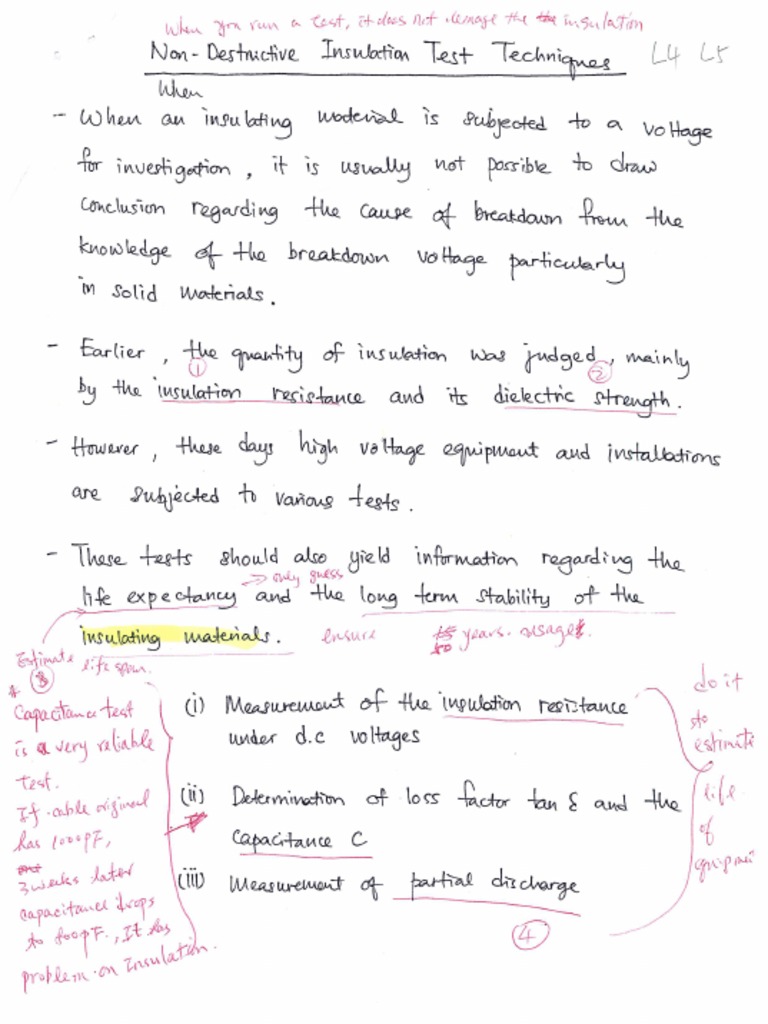 When you run a test, it does not demage the insulation
Non-Destructive Insulation Test Techniques L4 L5
When
- When an insulating material is subjected to a voltage
for investigation, it is usually not possible to draw
conclusion regarding the cause of breakdown from the
knowledge of the breakdown voltage particularly
in solid materials.
- Earlier, the quantity of insulation was judged, mainly
① ②
by the insulation resistance and its dielectric strength.
- However, these days high voltage equipment and installations
are subjected to various tests.
- These tests should also yield information regarding the
→ only guess
life expectancy and the long term stability of the
insulating materials. ensure 50 years. usage.
Estimate life span.
③
* Capacitance test
is a very reliable
test.
If cable original
has 1000pF,
3 weeks later
capacitance drops
to 800pF, It has
problem on Insulation.
(i) Measurement of the insulation resistance
under d.c voltages
(ii) Determination of loss factor tan δ and the
capacitance C
(iii) Measurement of partial discharge
④
do it
to
estimate
life
of